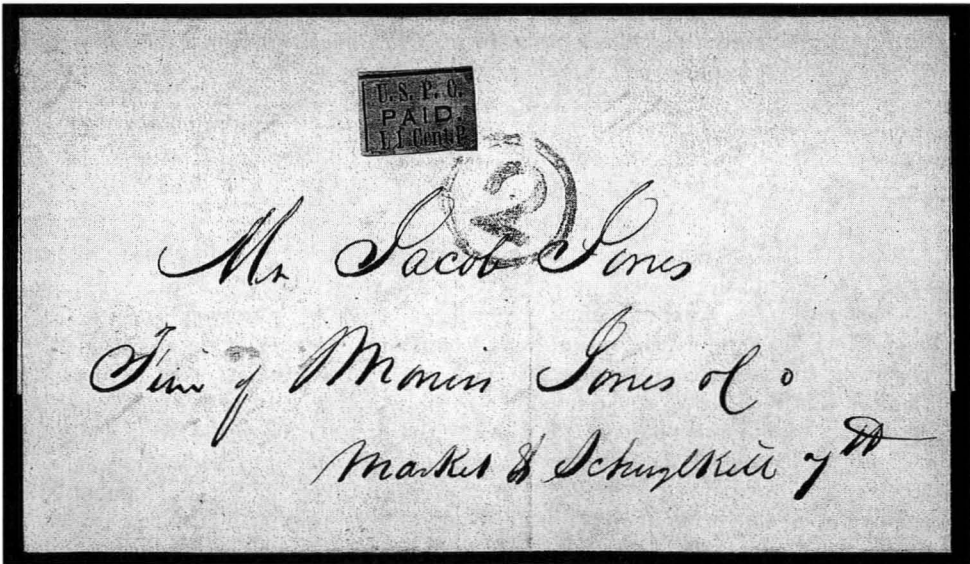 U.S.P.O.
PAID.
L 1 Cent P
2
Mr Jacob Jones
Firm of Morris Jones & Co
Market & Schuylkill 7th